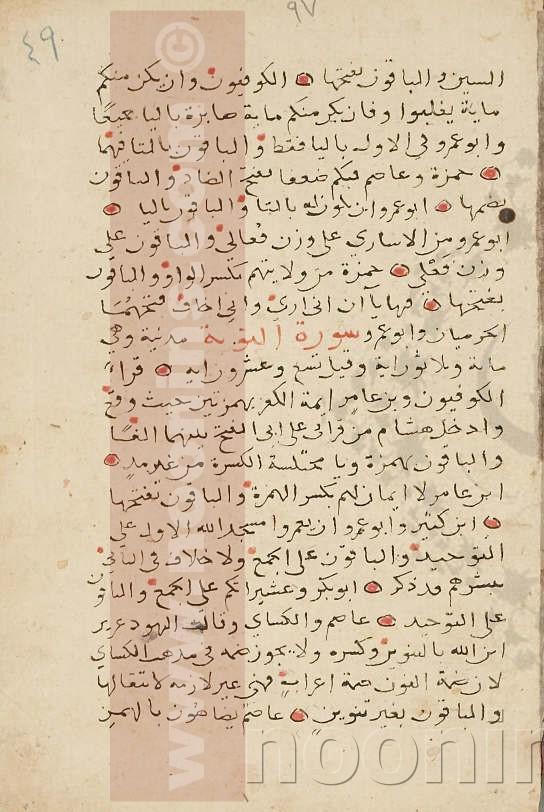 ٩٧
٤٩
السين والباقون بفتحها الكوفيون وان يكن منكم
ماية يغلبوا وفان يكن منكم ماية صابرة باليا جميعا
وابو عمرو في الاوله باليا فقط والباقون بالتا فيهما
حمزة وعاصم فيكم ضعفا بفتح الضاد والباقون
بضمها ابو عمرو ان تكون له بالتا والباقون باليا
ابو عمرو من الاسارى على وزن فعالى والباقون على
وزن فعلى حمزة من ولايتهم بكسر الواو والباقون
بفتحها فيها يآان انى ارى وانى اخاف فتحهما
الحرميان وابو عمرو سورة التوبة مدنية وهي
ماية وثلاثون اية وقيل تسع وعشرون اية قرا
الكوفيون وبن عامر ايمة الكفر بهمزتين حيث وقع
وادخل هشام من قراتى على ابى الفتح بينهما الفا
والباقون بهمزة ويا مختلسة الكسرة من غير مد
ابن عامر لا ايمان لهم بكسر الهمزة والباقون بفتحها
ابن كثير وابو عمرو ان يعمروا مسجد الله الاول على
التوحيد والباقون على الجمع ولا خلاف في الثاني
يبشرهم قد ذكر ابو بكر وعشيراتكم على الجمع والباقون
على التوحيد عاصم والكساي وقالت اليهود عزير
ابن الله بالتنوين وكسره ولا يجوز ضمه في مذهب الكساي
لان ضمة النون ضمة اعراب فهي غير لازمة لانتقالها
والباقون بغير تنوين عاصم يضاهون بالهمز
noonin